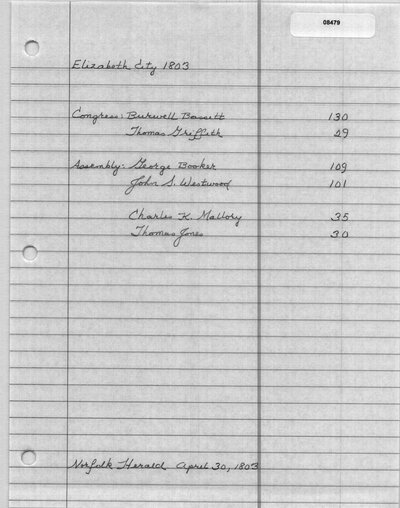 08479
Elizabeth City 1803
Congress: Burwell Bassett 130
Thomas Griffeth 29
Assembly: George Booker 109
John S. Westwood 101
Charles K. Mallory 35
Thomas Jones 30
Norfolk Herald April 30, 1803